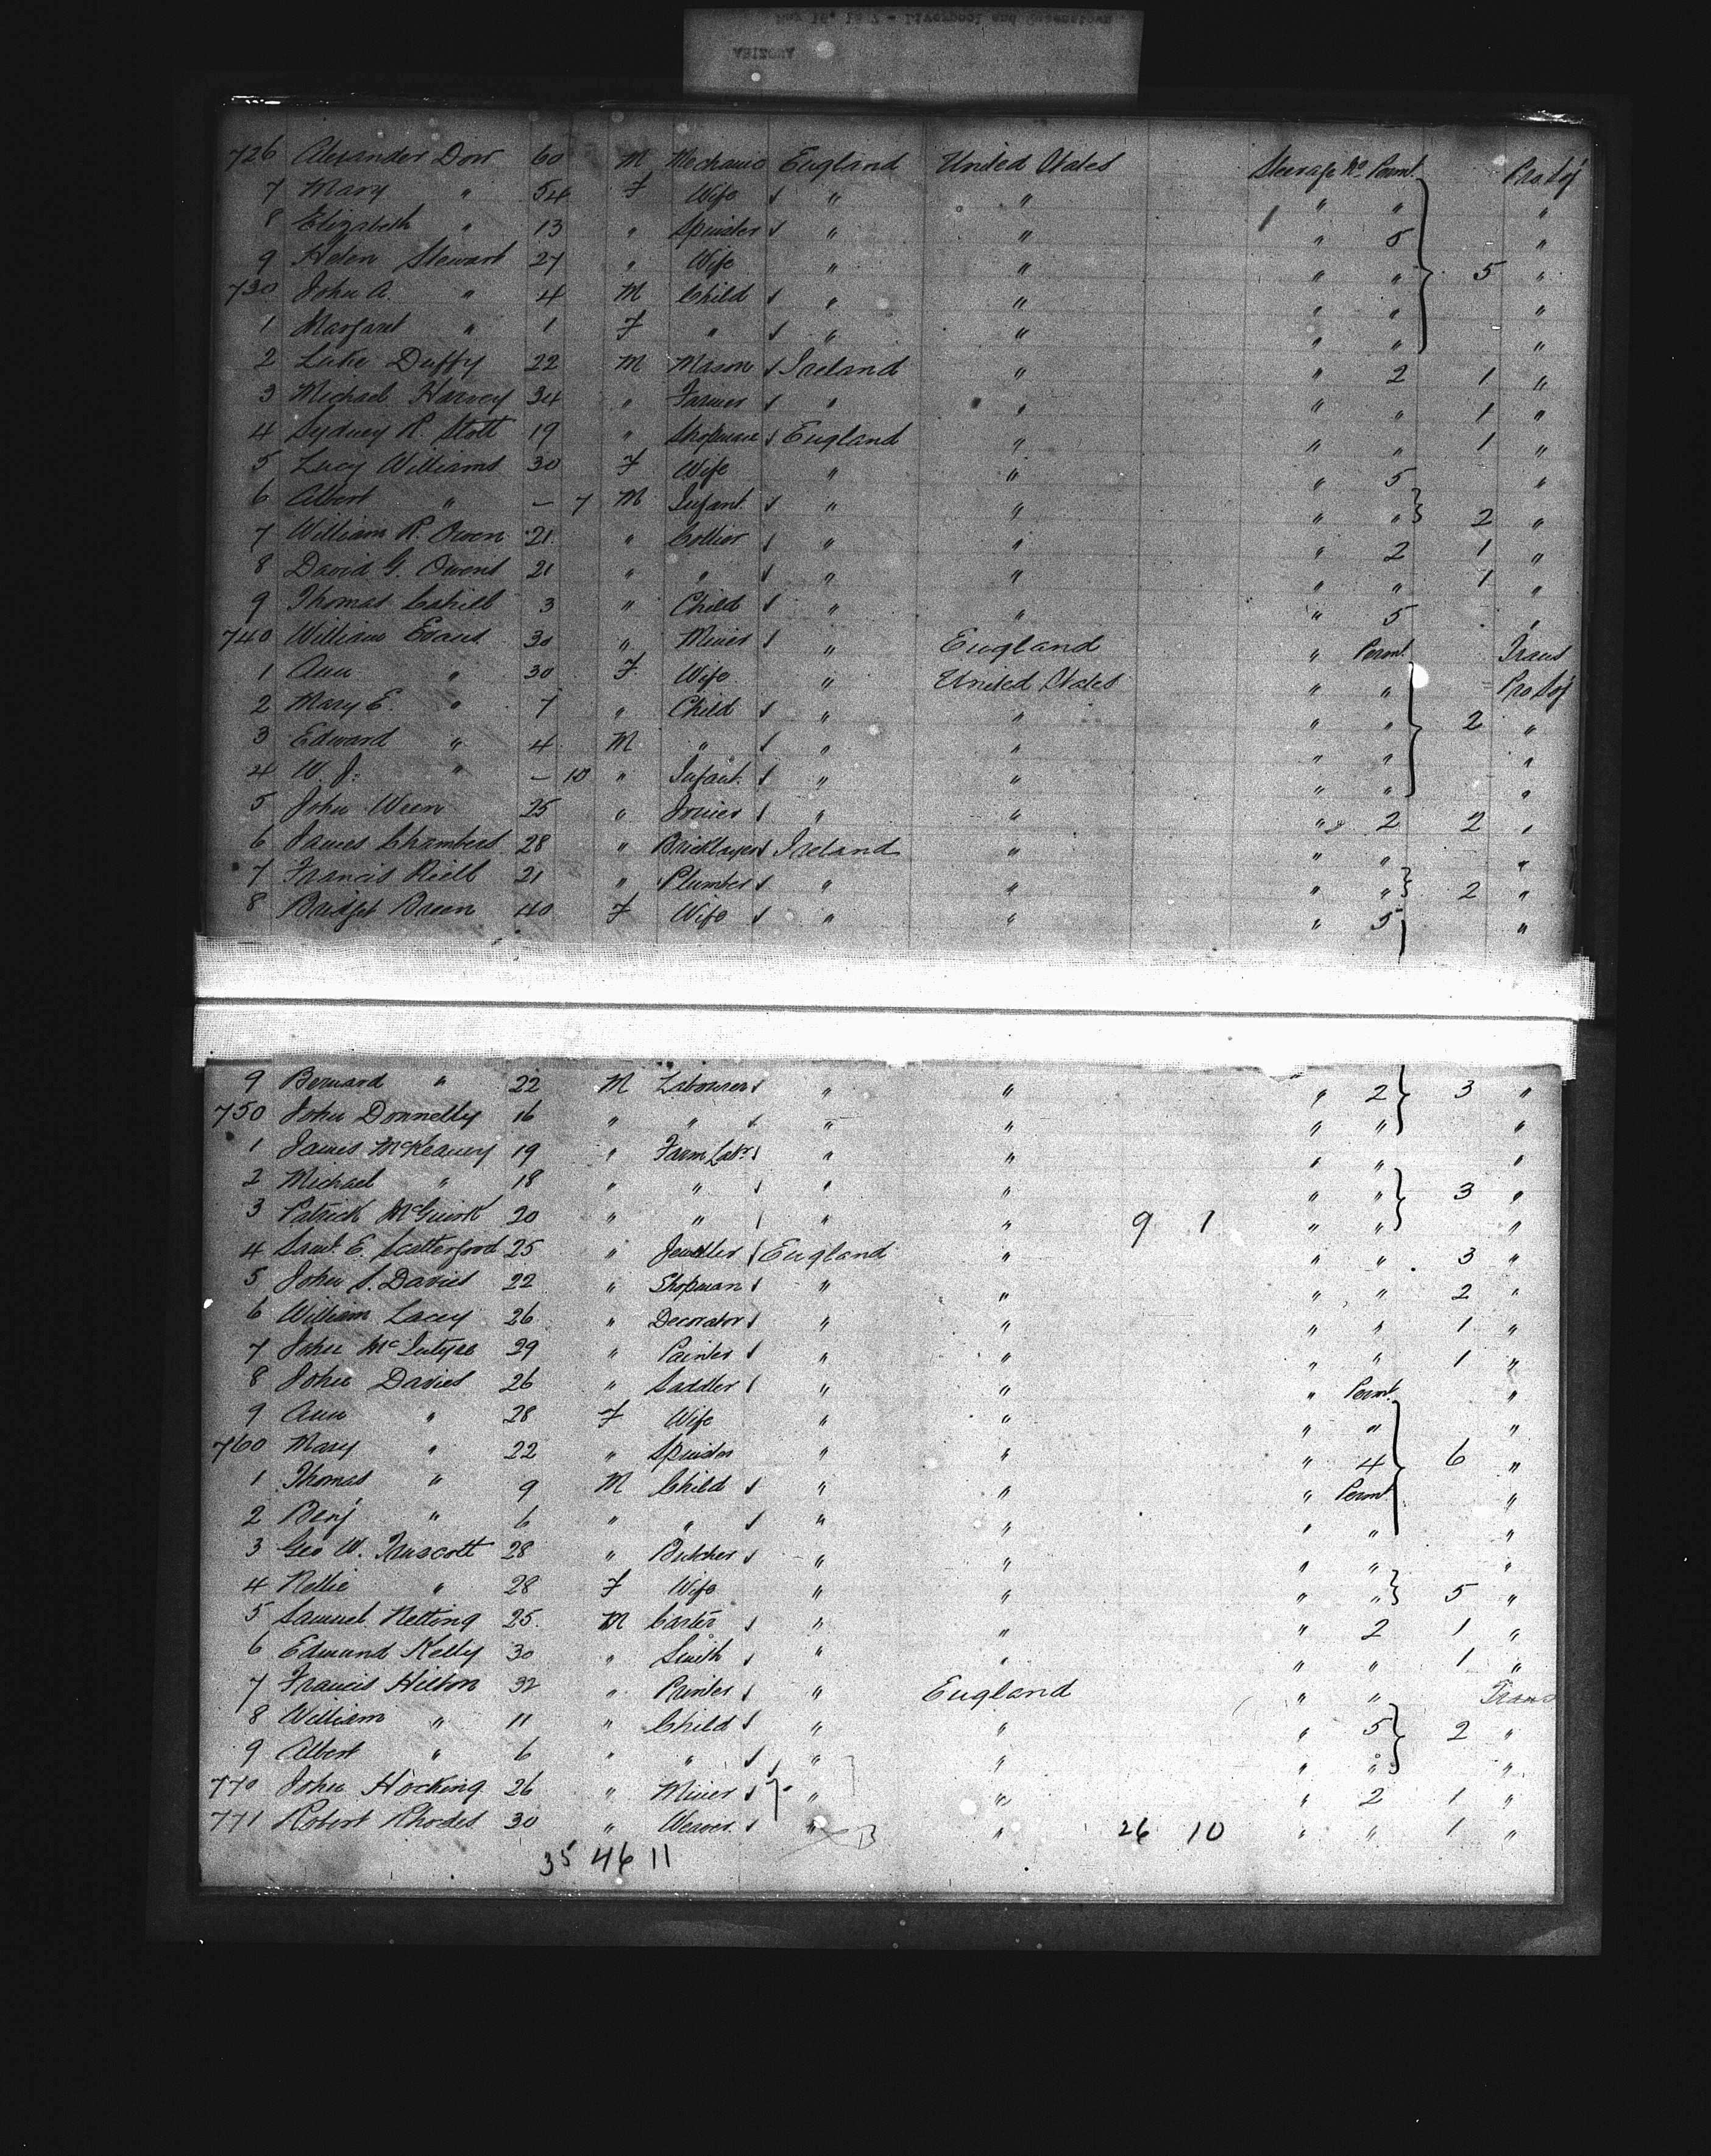 May 16, 1887 - Liverpool and Queenstown
ARIZONA
726 Alexander Dow 60 M Mechanic England United States Steerage No Permt. Pro Soj
7 Mary " 54 F Wife " " " " "
8 Elizabeth " 13 " Spinster " " " 5 "
9 Helen Stewart 27 " Wife " " " " 5 "
730 John A. " 4 M Child " " " " "
1 Margaret " 1 F " " " " " "
2 Luke Duffy 22 M Mason Ireland " " 2 1 "
3 Michael Harvey 34 " Farmer " " " " 1 "
4 Sydney R. Stott 19 " Shopman England " " " 1 "
5 Lucy Williams 30 F Wife " " " 5 "
6 Albert " – 7 M Infant " " " " 2 "
7 William R. Owen 21 " Collier " " " 2 1 "
8 David G. Owens 21 " " " " " " 1 "
9 Thomas Cahill 3 " Child " " " 5 "
740 William Evans 30 " Miner " England " Permt. Trans
1 Ann " 30 F Wife " United States " " Pro Soj
2 Mary E. " 7 " Child " " " " 2 "
3 Edward " 4 M " " " " " "
4 W. J. " – 10 " Infant. " " " " "
5 John Ween 25 " Joiner " " " 2 2 "
6 James Chambers 28 " Bricklayer Ireland " " " "
7 Francis Rielb 21 " Plumber " " " " 2 "
8 Bridget Breen 40 F Wife " " " 5 "
9 Bernard " 22 M Labourer " " " 2 3 "
750 John Donnelly 16 " " " " " " "
1 James McKeaney 19 " Farm Labr " " " " "
2 Michael " 18 " " " " " " 3 "
3 Patrick McGuirk 20 " " " " 9 1 " " "
4 Saml. E. Satterford 25 " Jeweller England " " " 3 "
5 John S. Davies 22 " Shopman " " " " 2 "
6 William Lacey 26 " Decorator " " " " 1 "
7 John McIntyre 29 " Painter " " " " 1 "
8 John Davies 26 " Saddler " " " Permt. "
9 Ann " 28 F Wife " " " " "
760 Mary " 22 " Spinster " " " 4 6 "
1 Thomas " 9 M Child " " " Permt. "
2 Benj " 6 " " " " " " "
3 Geo W. Truscott 28 " Butcher " " " " "
4 Nellie " 28 F Wife " " " " 5 "
5 Samuel Netting 25 M Carter " " " 2 1 "
6 Edmund Kelly 30 " Smith " " " " 1 "
7 Francis Hilton 32 " Printer " England " " Trans
8 William " 11 " Child " " " 5 2 "
9 Albert " 6 " " " " " " "
770 John Hocking 26 " Miner " " " 2 1 "
771 Robert Rhodes 30 " Weaver " " 26 10 " " 1 "
35 46 11